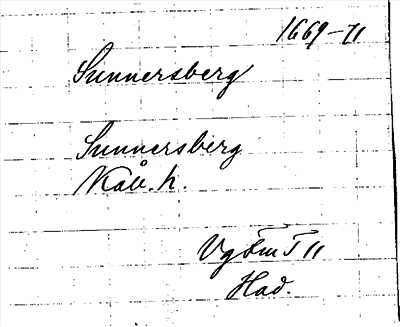 1669-71
Sunnersberg
Sunnersberg
Kåll. h.
Vg Fmt 11
Had.